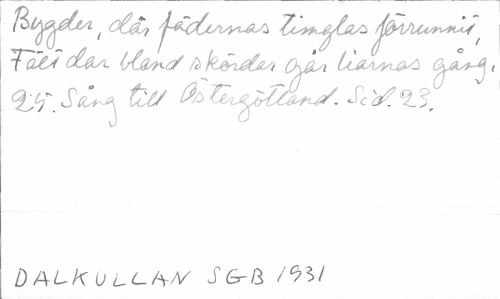 Bygder, där fädernas timglas förrunnit,
Fält där bland skördar går liarnas gång.
25. Sång till Östergötland. Sid. 23.
DALKULLAN SGB 1931